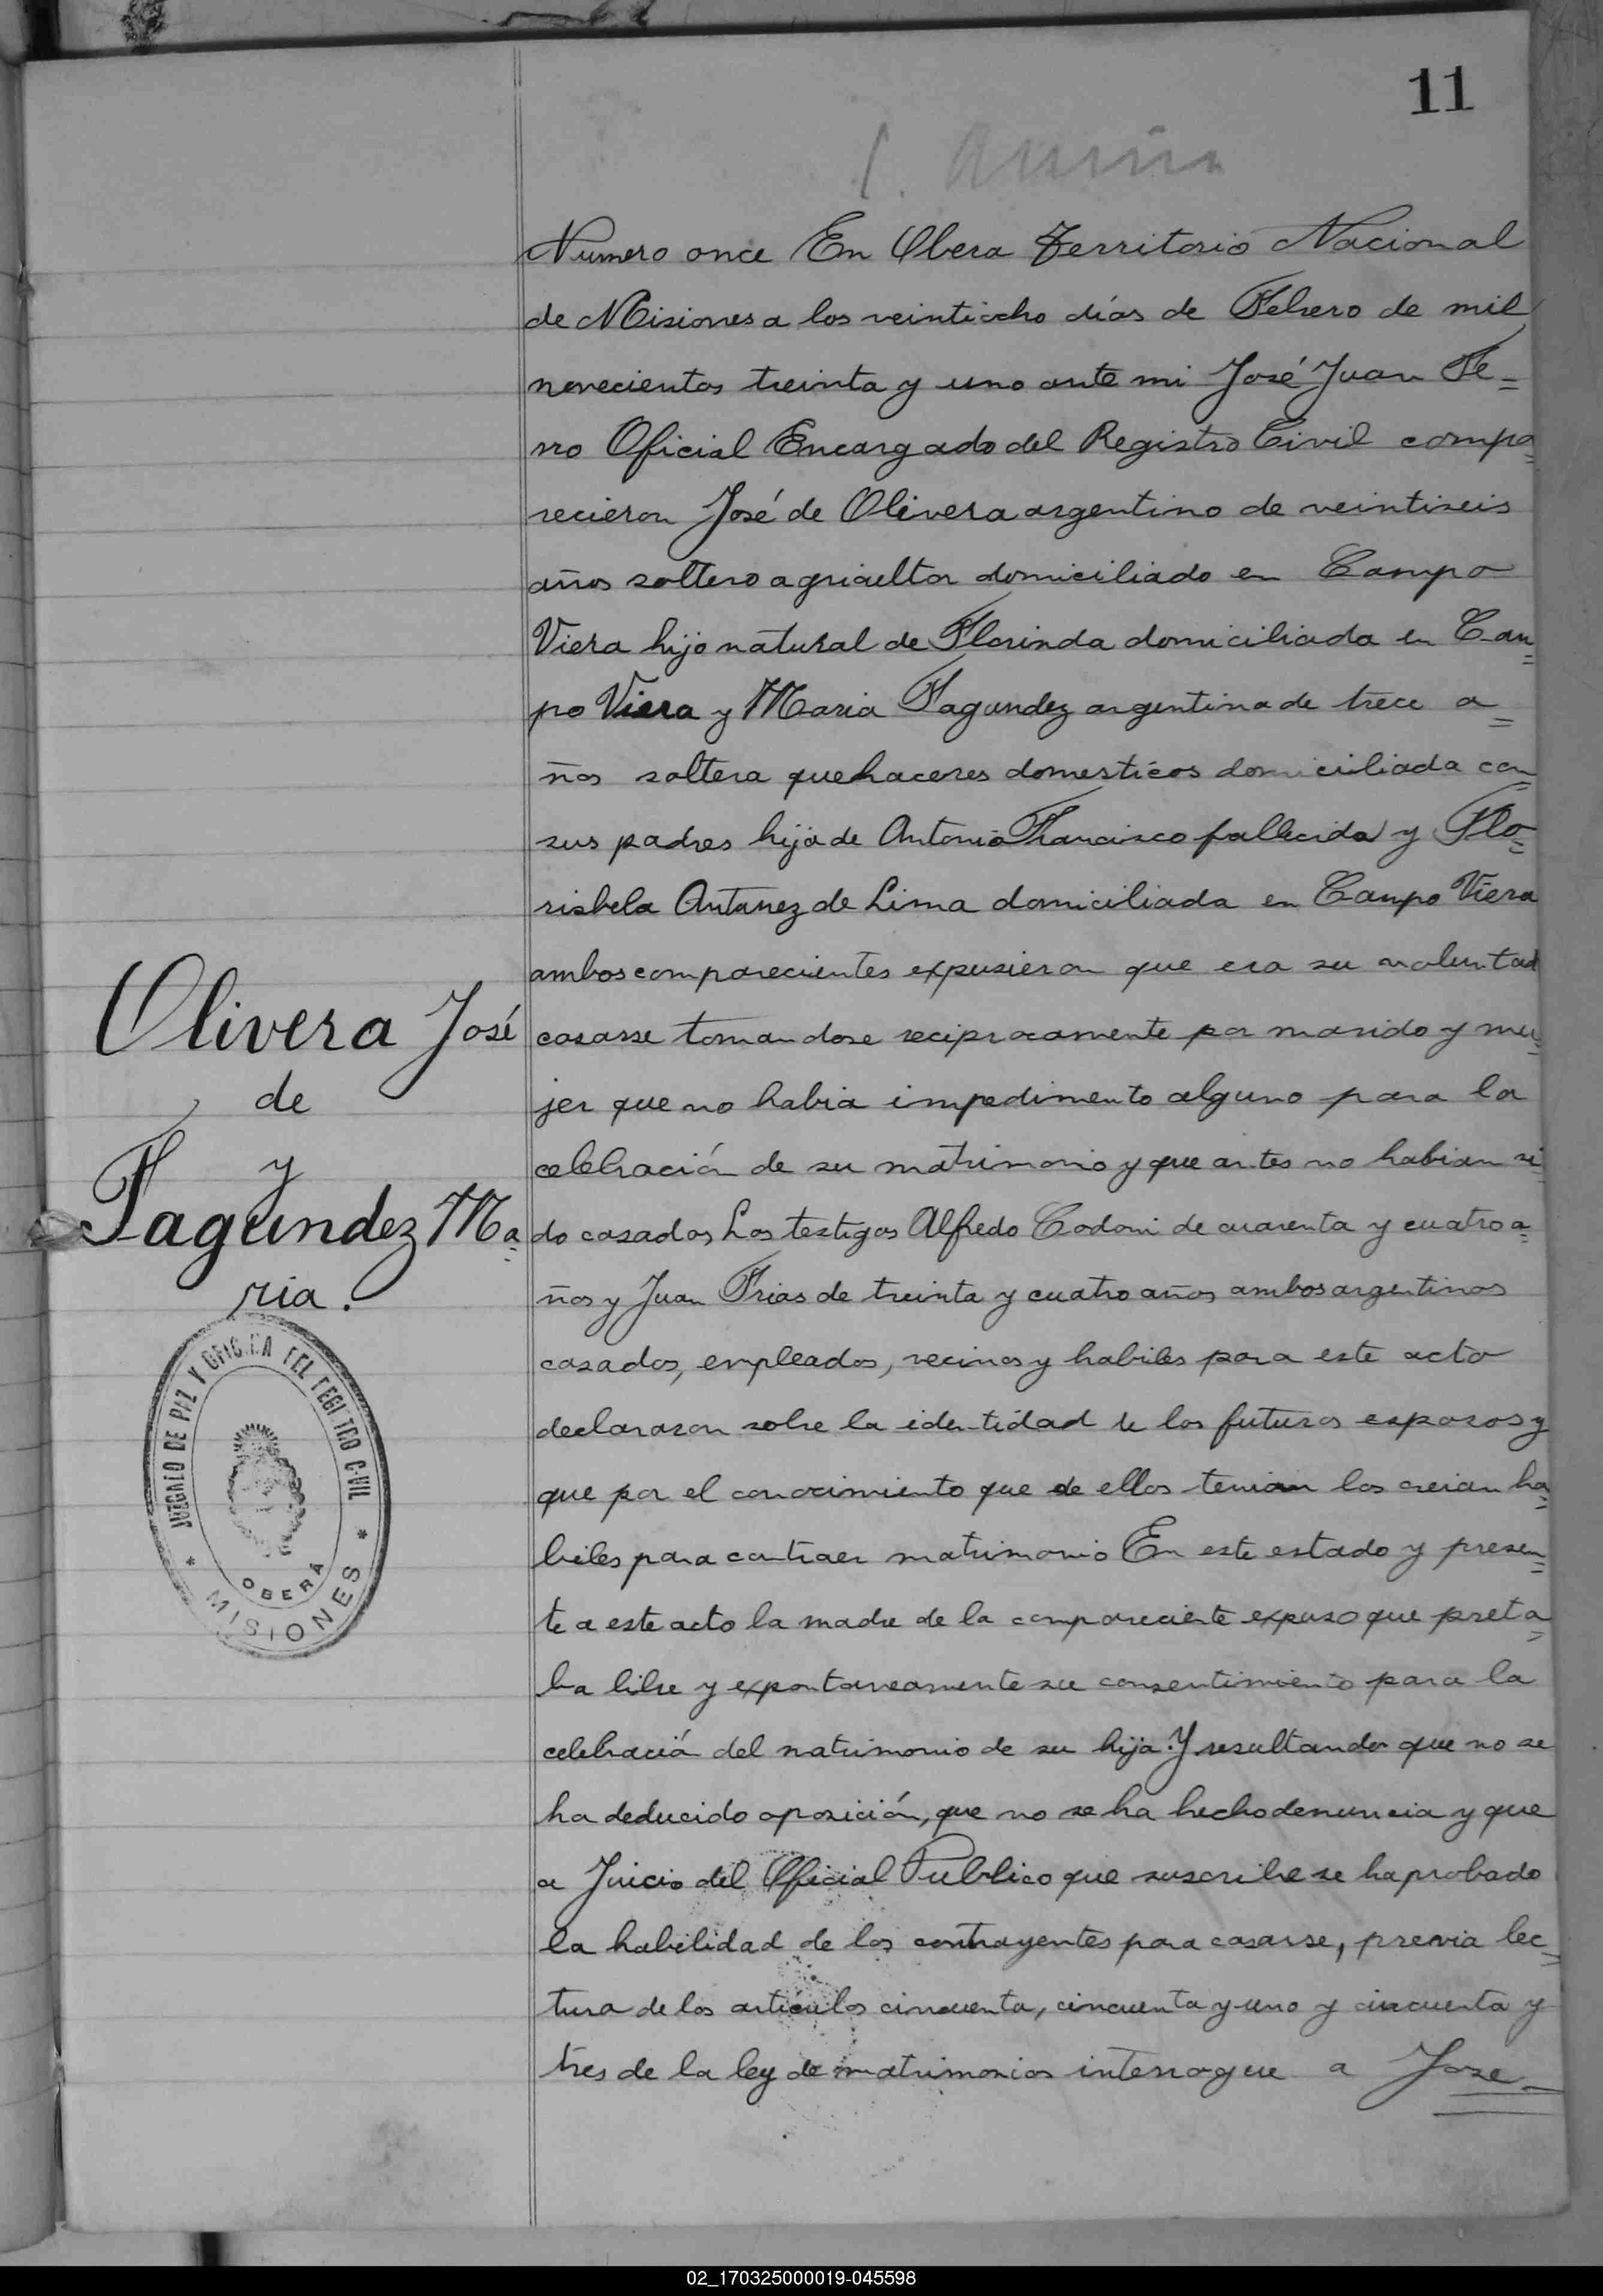 11
Numero once En Obera Territorio Nacional
de Misiones a los veintiocho días de Febrero de mil
novecientos treinta y uno ante mi José Juan Fe=
rro Oficial Encargado del Registro Civil compa=
recieron José de Olivera argentino de veintiseis
años soltero agricultor domiciliado en Campo
Viera hijo natural de Florinda domiciliada en Cam=
po Viera y Maria Fagundez argentina de trece a=
ños soltera quehaceres domesticos domiciliada con
sus padres hija de Antonio Francisco fallecido y Flo=
risbela Antunez de Lima domiciliada en Campo Viera
ambos comparecientes expusieron que era su voluntad
casarse tomandose reciprocamente por marido y mu=
jer que no habia impedimento alguno para la
celebración de su matrimonio y que antes no habian si
do casados Los testigos Alfredo Codoni de cuarenta y cuatro a=
ños y Juan Frias de treinta y cuatro años ambos argentinos
casados, empleados, vecinos y habiles para este acto
declararon sobre la identidad de los futuros esposos y
que por el conocimiento que de ellos tenian los creian ha=
biles para contraer matrimonio En este estado y presen=
te a este acto la madre de la compareciente expuso que preta=
ba libre y expontaneamente su consentimiento para la
celebración del matrimonio de su hija. Y resultando que no se
ha deducido oposición, que no se ha hecho denuncia y que
a Juicio del Oficial Publico que suscribe se ha probado
la habilidad de los contrayentes para casarse, previa lec=
tura de los articulos cincuenta, cincuenta y uno y cincuenta y
tres de la ley de matrimonios interrogue a Jose
Olivera José
de
y
Fagundez Ma=
ria.
JUZGADO DE PAZ Y OFICINA DEL REGISTRO CIVIL
OBERÁ
* MISIONES *
02_170325000019-045598